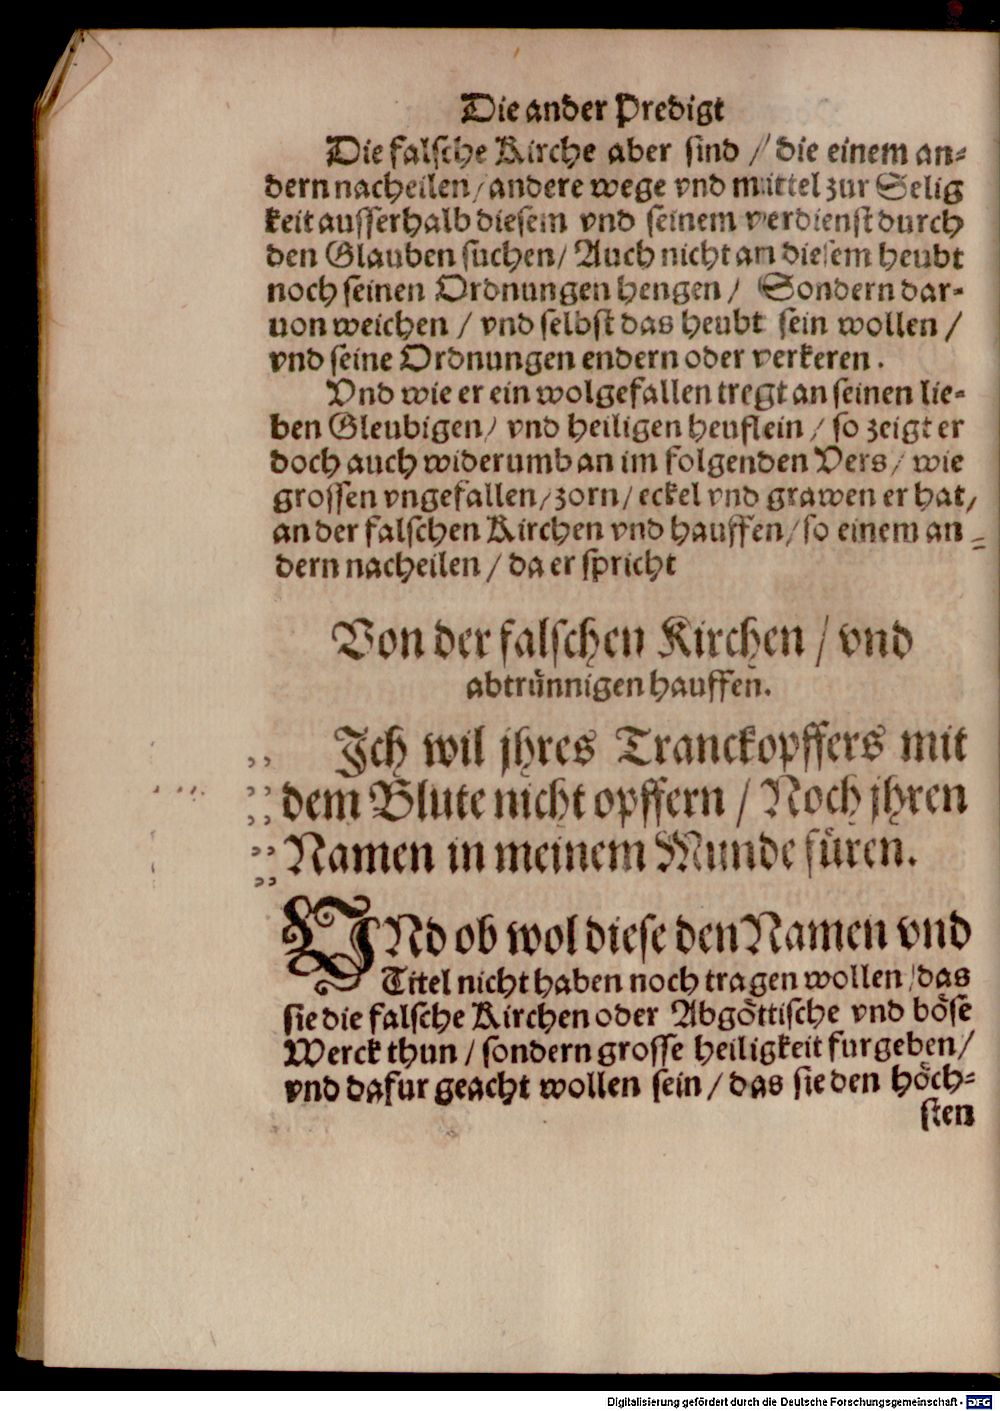 Die ander Predigt
Die falsche Kirche aber sind / die einem an-
dern nacheilen / andere wege vnd mittel zur Selig
keit ausserhalb diesem vnd seinem verdienst durch
den Glauben suchen / Auch nicht an diesem heubt
noch seinen Ordnungen hengen / Sondern dar-
uon weichen / vnd selbst das heubt sein wollen /
vnd seine Ordnungen endern oder verkeren.
Vnd wie er ein wolgefallen tregt an seinen lie-
ben Gleubigen / vnd heiligen heuflein / so zeigt er
doch auch widerumb an im folgenden Vers / wie
grossen vngefallen / zorn / eckel vnd grawen er hat /
an der falschen Kirchen vnd hauffen / so einem an-
dern nacheilen / da er spricht
Von der falschen Kirchen / vnd
abtrünnigen hauffen.
Ich wil jhres Tranckopffers mit
dem Blute nicht opffern / Noch jhren
Namen in meinem Munde füren.
VNd ob wol diese den Namen vnd
Titel nicht haben noch tragen wollen / das
sie die falsche Kirchen oder Abgöttische vnd böse
Werck thun / sondern grosse heiligkeit furgeben /
vnd dafur geacht wollen sein / das sie den höch-
sten
Digitalisierung gefördert durch die Deutsche Forschungsgemeinschaft - DFG